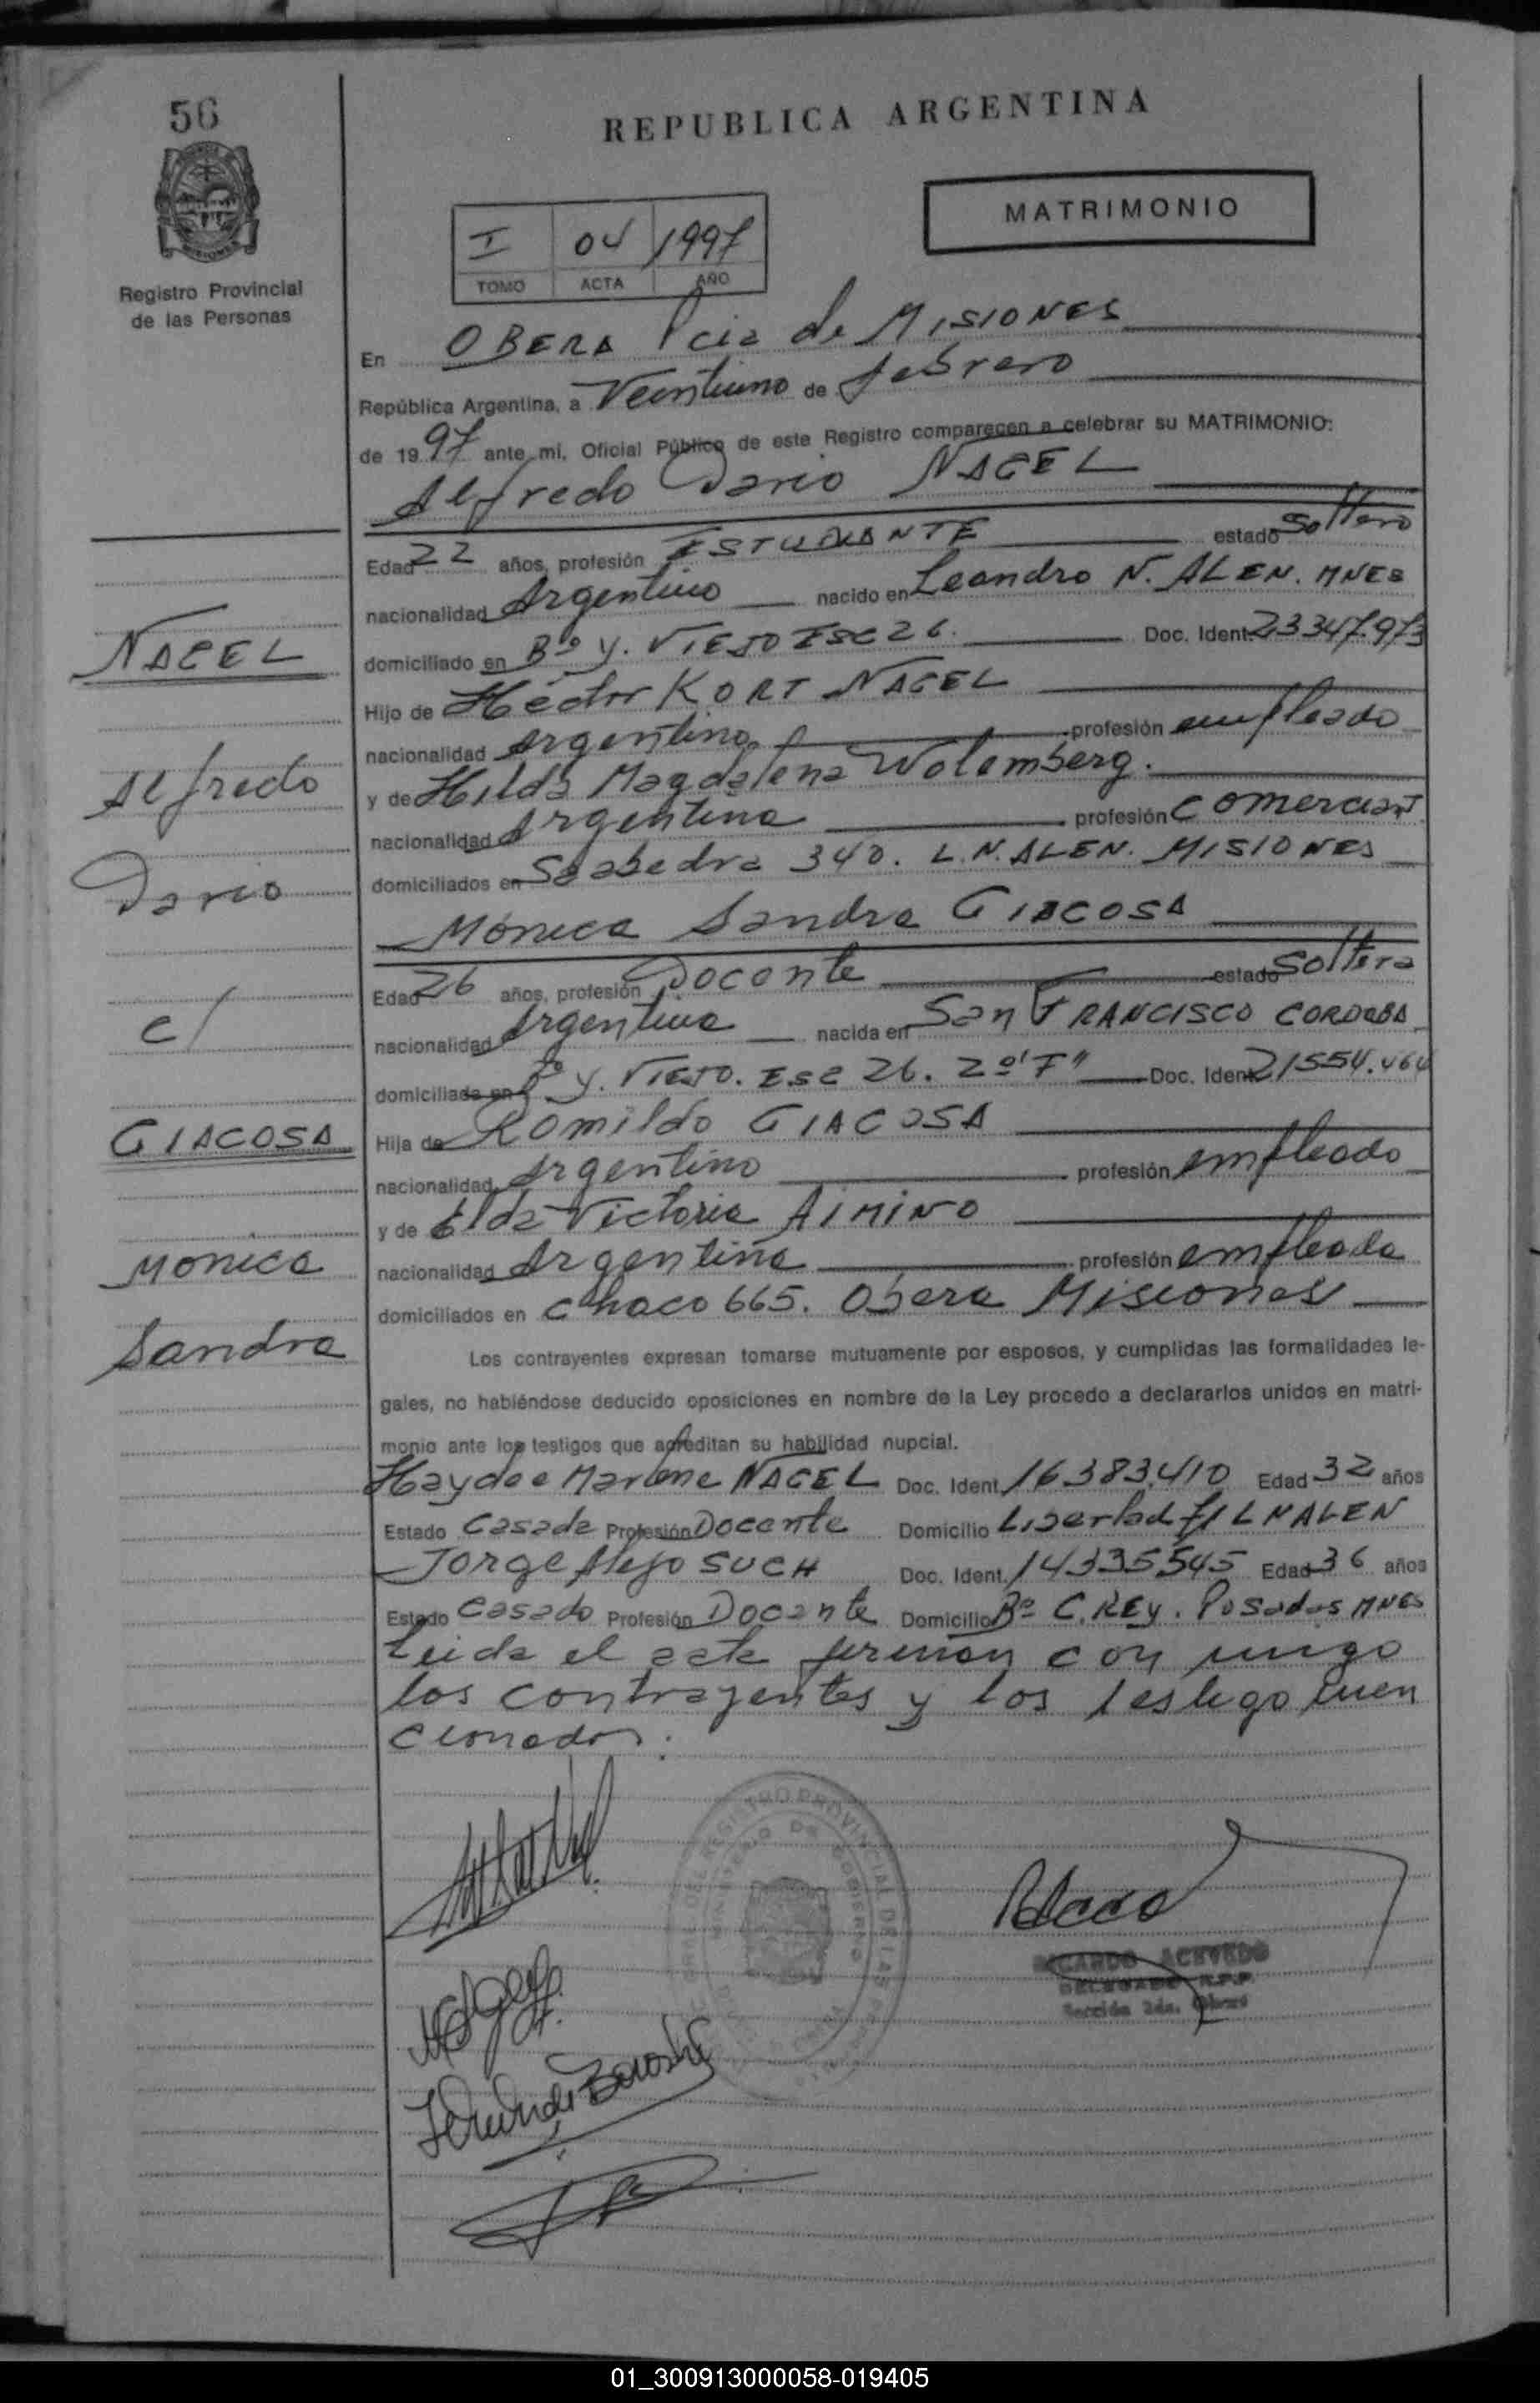 56
REPUBLICA ARGENTINA
MATRIMONIO
I 04 1997
TOMO ACTA AÑO
Registro Provincial
de las Personas
En OBERA Pcia de MISIONES
República Argentina, a Veintiuno de febrero
de 1997 ante mi, Oficial Público de este Registro comparecen a celebrar su MATRIMONIO:
Alfredo Dario NAGEL
Edad 22 años, profesión ESTUDIANTE estado Soltero
nacionalidad Argentino nacido en Leandro N. ALEN. MNES
domiciliado en Bº Y. VIEJO ESC 26. Doc. Ident. 23347.973
Hijo de Héctor KORT NAGEL
nacionalidad Argentino profesión empleado
y de Hilda Magdalena Wolemberg.
nacionalidad Argentina profesión Comerciant
domiciliados en Saabedra 340. L.N. ALEN. MISIONES
Mónica Sandra GIACOSA
Edad 26 años, profesión Docente estado Soltera
nacionalidad Argentina nacida en San FRANCISCO CORDOBA
domiciliada en Bº Y. VIEJO. ESC 26. 2º "F" Doc. Ident. 21554.464
Hija de Romildo GIACOSA
nacionalidad Argentino profesión empleado
y de Elda Victoria AIMINO
nacionalidad Argentina profesión empleada
domiciliados en Chaco 665. Obera Misiones
Los contrayentes expresan tomarse mutuamente por esposos, y cumplidas las formalidades le-
gales, no habiéndose deducido oposiciones en nombre de la Ley procedo a declararlos unidos en matri-
monio ante los testigos que acreditan su habilidad nupcial.
Haydee Marlene NAGEL Doc. Ident. 16383.410 Edad 32 años
Estado Casada Profesión Docente Domicilio Libertad L N ALEN
Jorge Alejo SUCH Doc. Ident. 14335545 Edad 36 años
Estado Casado Profesión Docente Domicilio Bº C. REY. Posadas MNES
Leida el acta firman con migo
los contrayentes y los testigo men
cionados.
NAGEL
Alfredo
Dario
c/
GIACOSA
Monica
Sandra
RICARDO ACEVEDO
DELEGADO R.P.P.
Sección 2da. Oberá
01_300913000058-019405